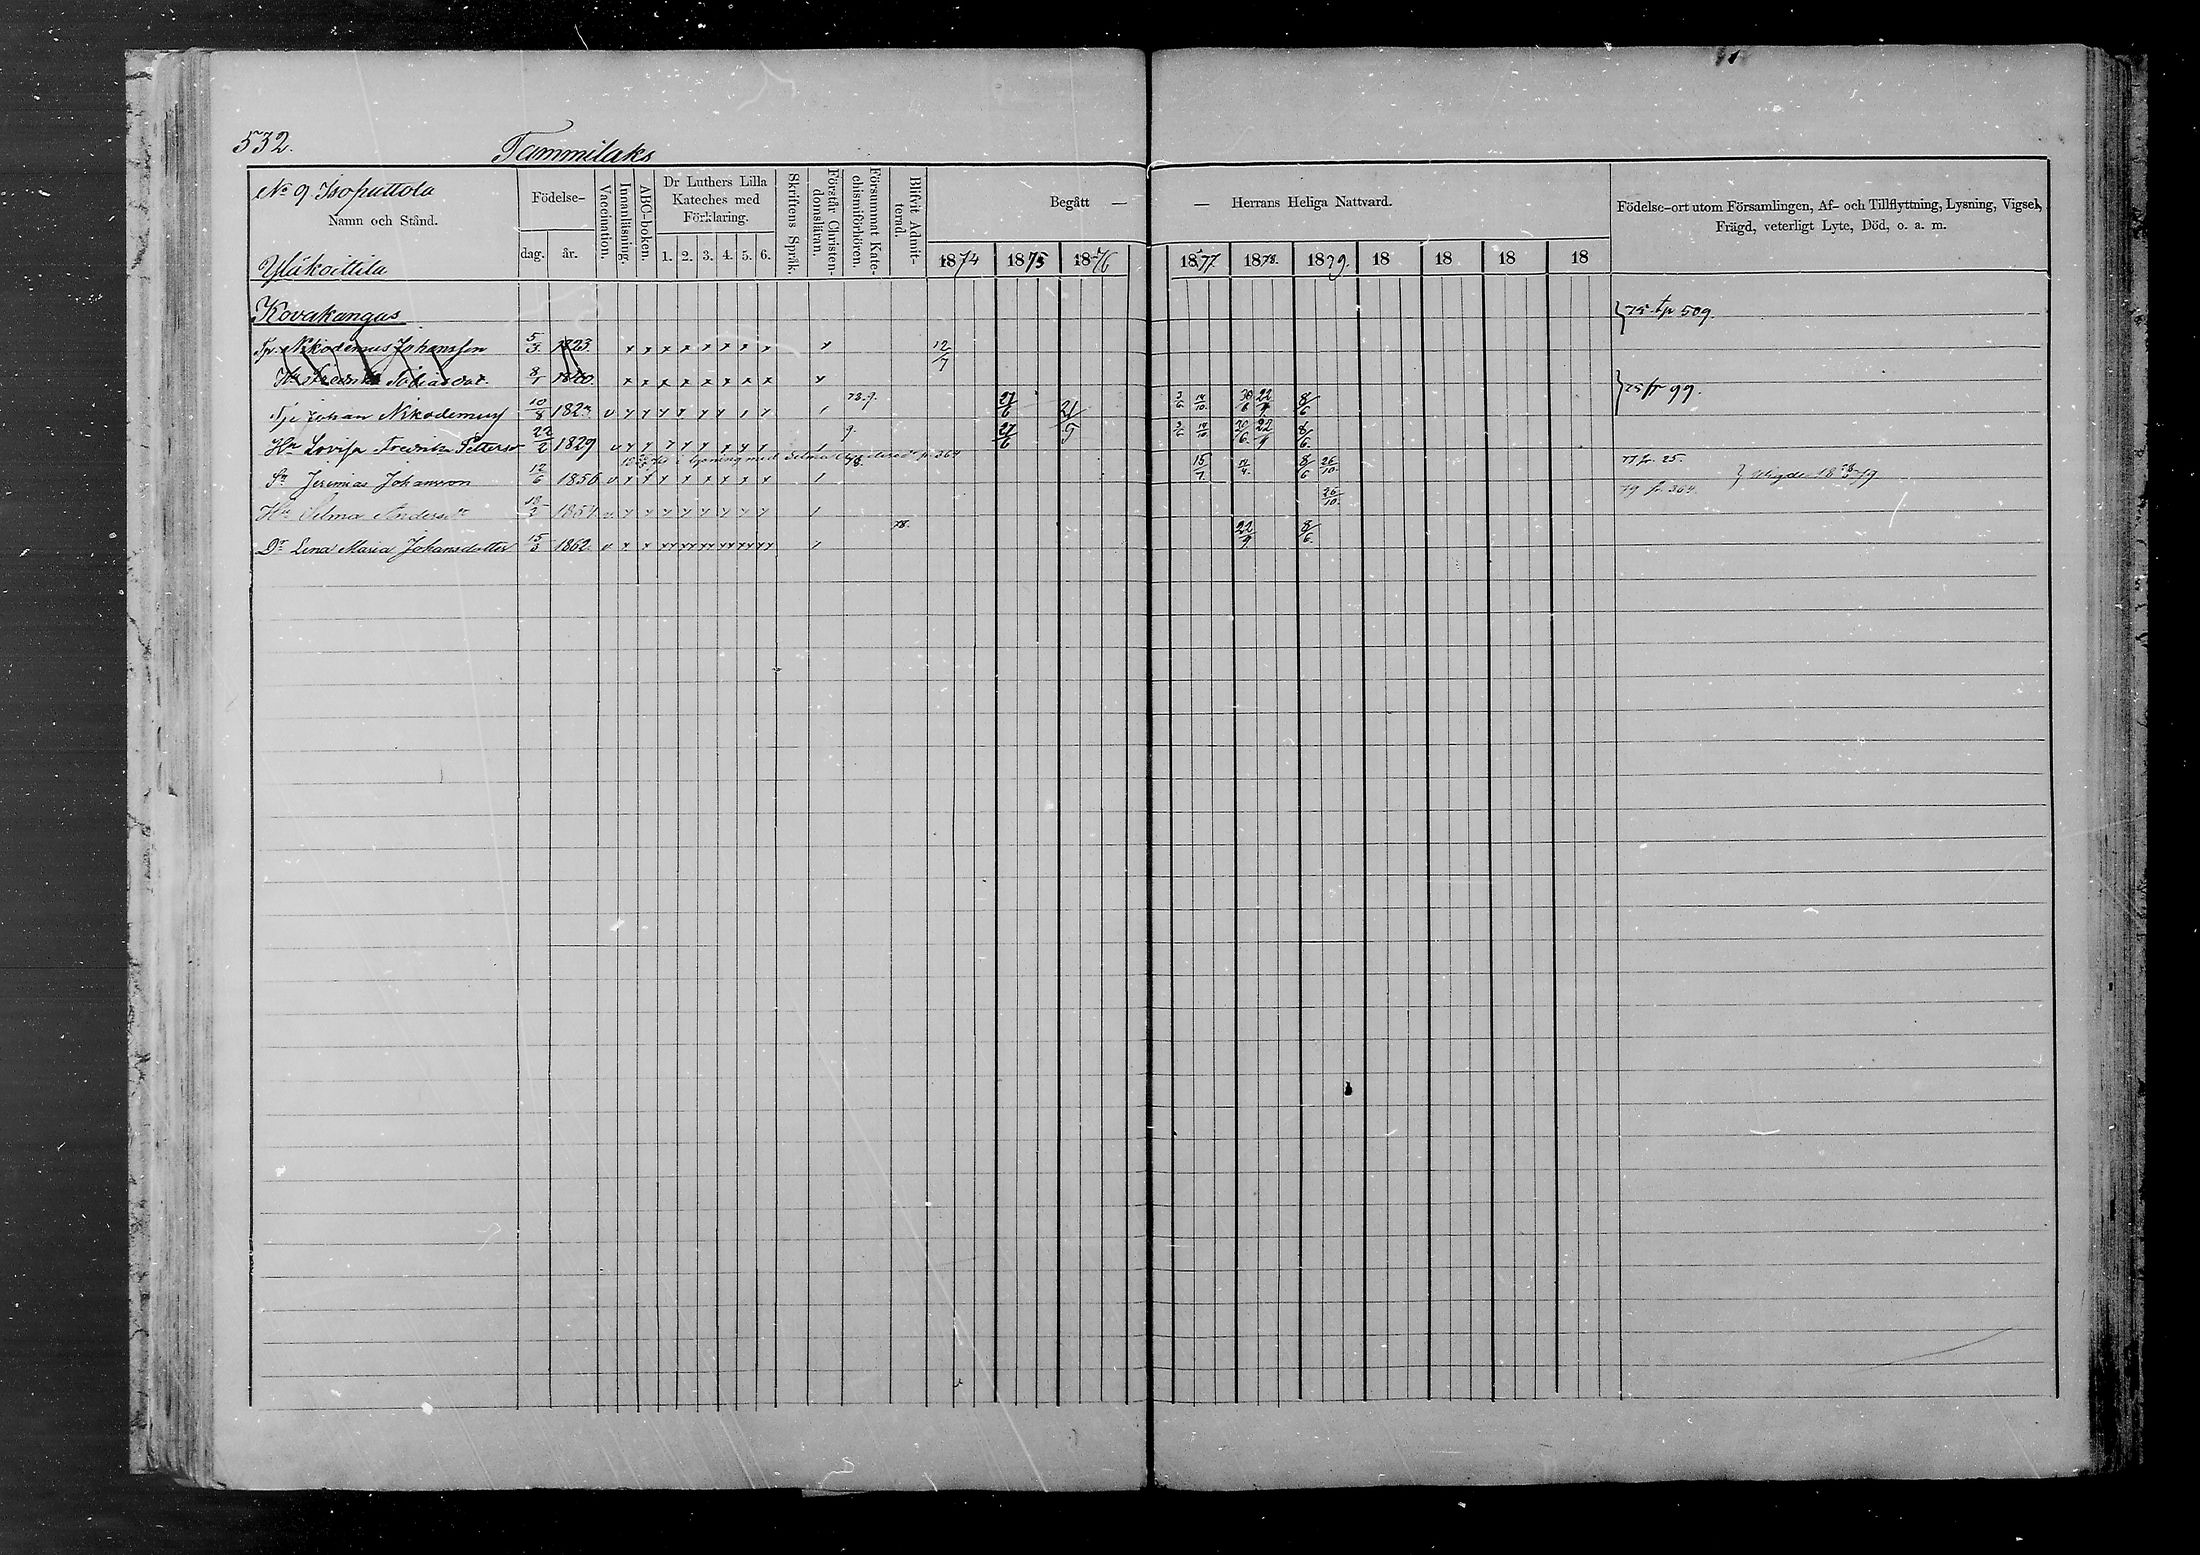 532.
Tammilaks
No 9 Isoputtola
Namn och Stånd.
Yläkoittila
Födelse-
dag.
år.
Vaccination.
Innanläsning.
ABC-boken.
Dr Luthers Lilla Kateches med Förklaring.
1. 2. 3. 4. 5. 6.
Skriftens Språk.
Förstår Christendomsläran.
Försummat Katechismiförhören.
Blifvit Admitterad.
Begått — — Herrans Heliga Nattvard.
1874 1875 1876 1877 1878. 1879. 18 18 18 18
Födelse-ort utom Församlingen, Af- och Tillflyttning, Lysning, Vigsel,
Frägd, veterligt Lyte, Död, o. a. m.
Kovakangas
Nikodemus Johansson 5/3 1823. x x x x x x x x x 12/7 } 75 tp 509.
Hu Fredrika 8/1 1820. x x x x x x x x x
Johan Nikodemuss 10/8 182 v 78.9. 27/6 3/6 14/10 22/9 8/6 } 75 fr 99.
Hu Lovisa Fredrika Petters 22/2 1829 v 9. 27/6 3/6 14/10 22/9 8/6
lysning med Selma p. 364
Sn Jeremias Johansson 12/6 1850 v 78. 15/7 14/4 8/6 26/10 77 fr. 25.
Hu Selma Anders dr 1854 v 26/10 79 fr. 364. } Vigde 18 79
Dr Lena Maria Johansdotter 15/3 1862 v 78. 22/9 8/6